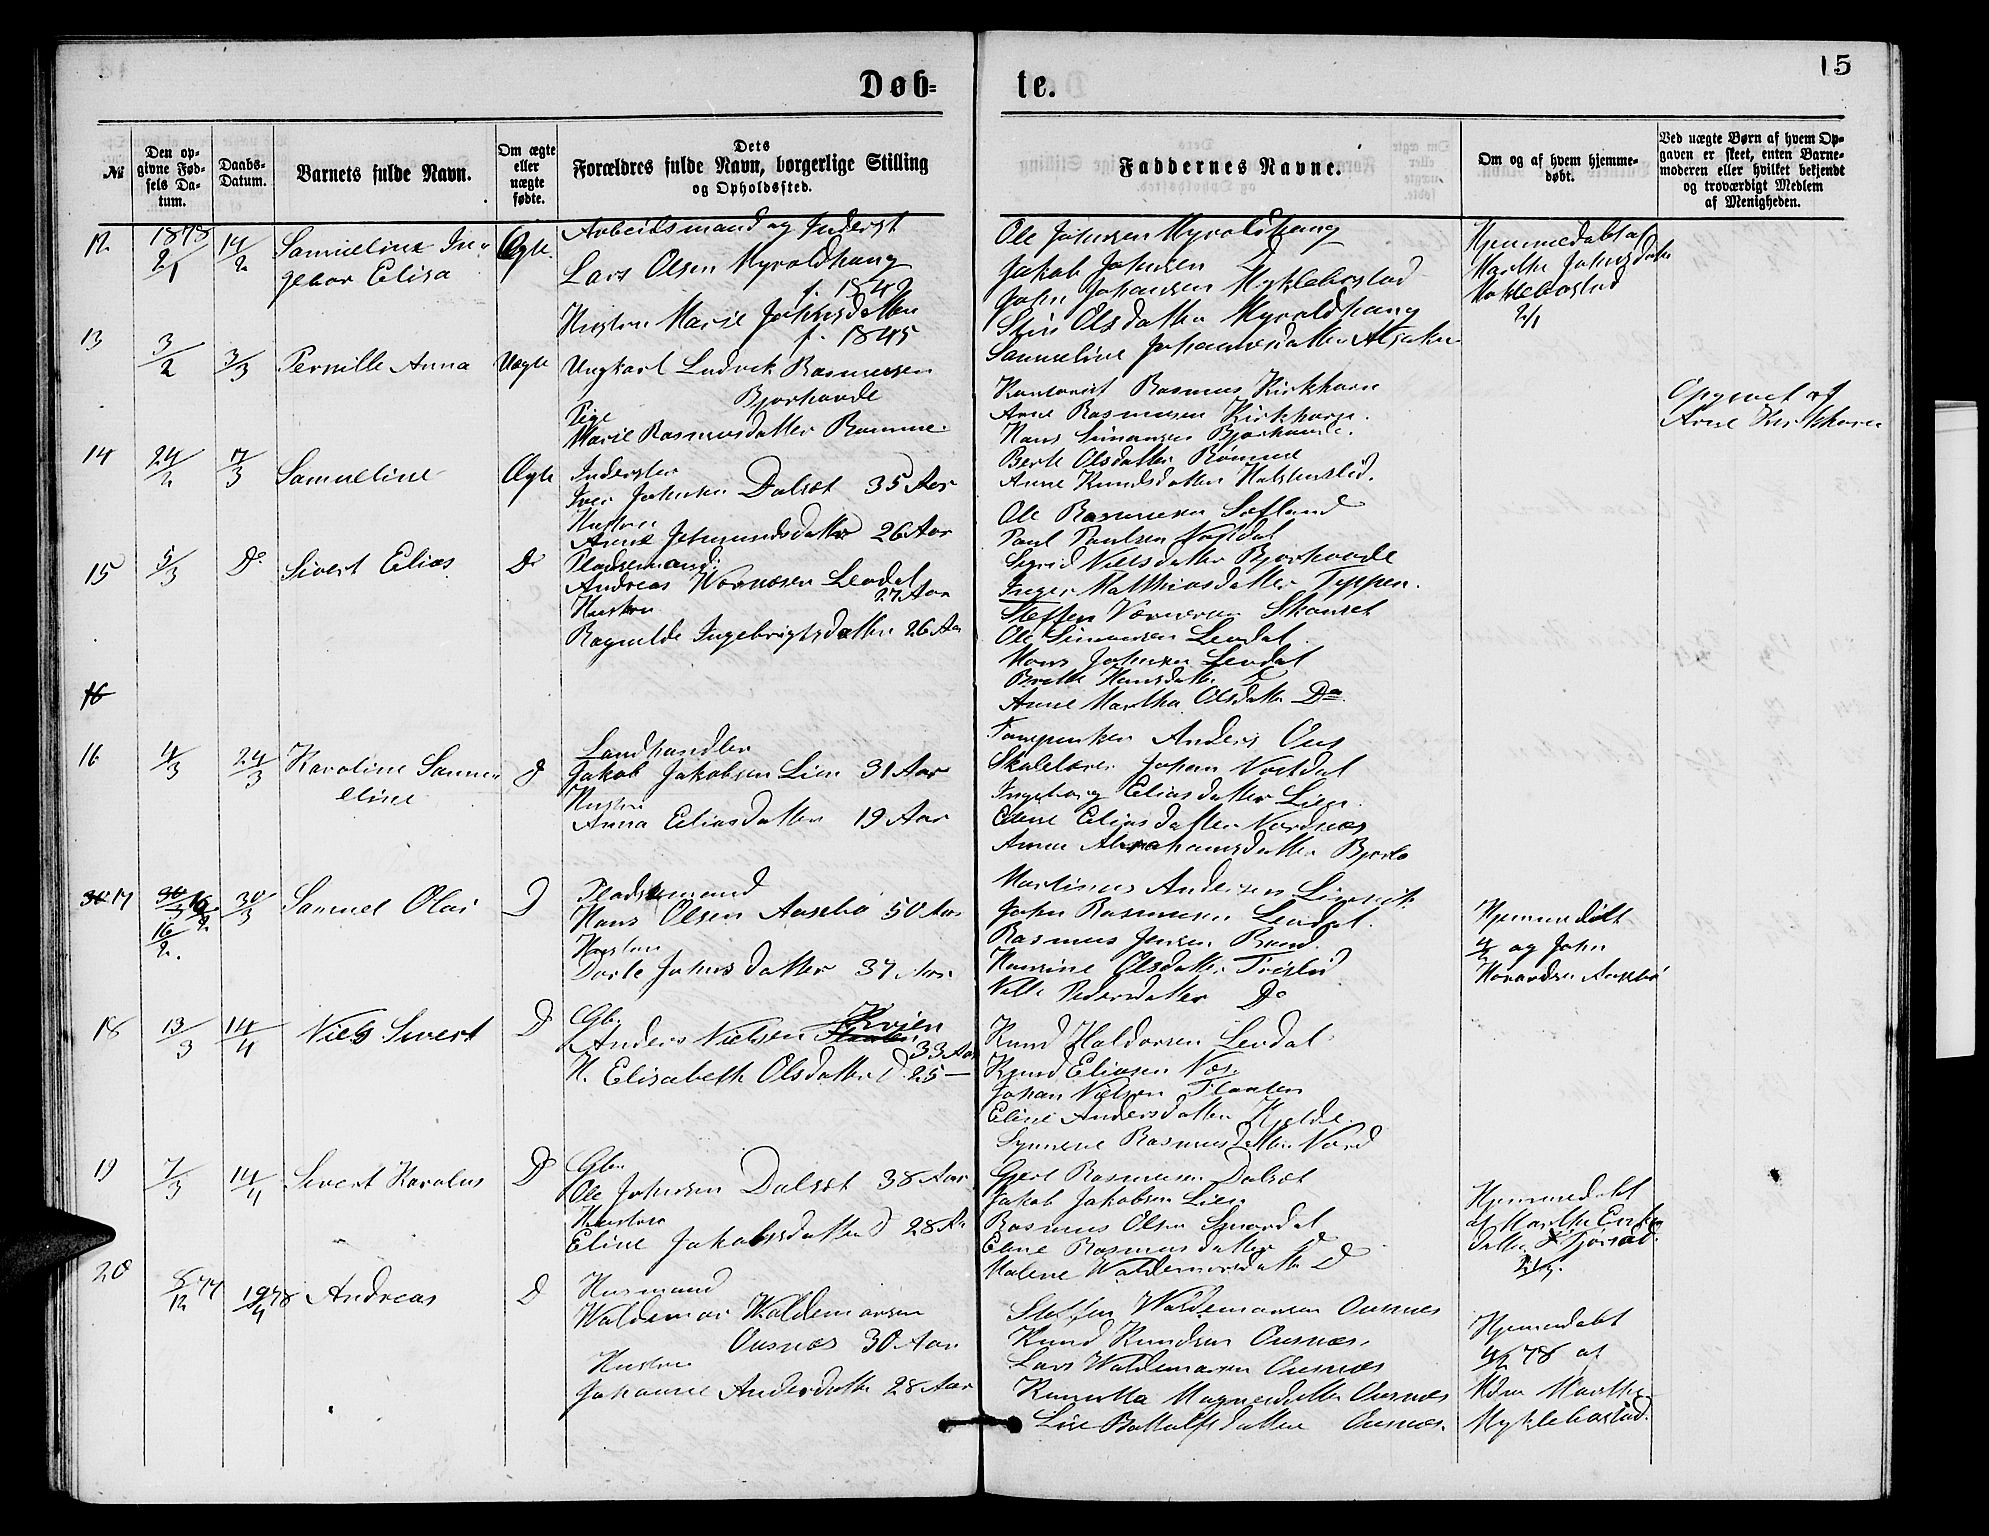 15
Døb-
te.
№
Den op-
givne Fød-
sels Da-
tum.
Daabs-
Datum.
Barnets fulde Navn.
Om ægte
eller
uægte
fødte.
Dets
Forældres fulde Navn, borgerlige Stilling
og Opholdssted.
Faddernes Navne.
Om og af hvem hjemme-
døbt.
Ved uægte Børn af hvem Op-
gaven er skeet, enten Barne-
moderen eller hvilket bekjendt
og troværdigt Medlem
af Menigheden.
12
1878
2/1
14/2
Samueline In-
gebor Elisa
Ægte.
Arbeidsmand og Inderst
Lars Olsen Myroldhaug
f. 1842
Hustru Marie Johnsdatter
f. 1845
Ole Johnsen Myroldhaug
Jakob Johnsen D
John Johansen Myklebostad
Stine Olsdatter Myroldhaug
Samueline Johannesdatter
Hjemmedøbt af
Marthe Johnsdatter
Myklebostad
2/1
13
3/2
3/3
Pernille Anna
Uægte
Ungkarl Ludvik Rasmussen
Bjørhovde
Pige
Marie Rasmusdatter Ramme
Rasmus Kirkhorn
Arne Rasmussen Kirkhorn.
Hans Simonsen Bjørhovde.
Berte Olsdatter Ramme
Anne Knudsdatter
Opgivet af
Arne Kirkhorn
14
24/2
17/3
Samueline
Ægte
Inderster
Iver Johnsen Dalsæt 35 Aar
Hustru
Anne Johnsdatter 26 Aar
Ole Rasmussen Sætland
Paul Paulsen Nordal
Sigrid Nielsdatter Bjørhovde
Inger Matthiasdatter Typpen.
15
5/3
Do
Sivert Elias
Do
Pladsemand
Andreas Værnesen Levdal
27 Aar
Hustru
Ragnilde Ingebrigtsdatter 26 Aar
Steffen Værnesen Skorset
Ole Simonsen Levdal.
Hans Johnsen Levdal
Brithe Hansdatter D
Anne Martha Olsdatter Do
16
16
4/3
24/3
Karoline Samu-
eline
D
Landhandler
Jakob Jakobsen Lien 31 Aar
Hustru
Anna Eliasdatter 19 Aar
Anders Aus
Skolelærer Johan Nordal
Ingeborg Eliasdatter Lien.
Elene Eliasdatter Nordnæs
Anne Abrahamsdatter Bjørlo
30 17
30/3
16/2.
30/3
Samuel Olai
D
Pladsemand
Hans Olsen Aasebø 50 Aar
Hustru
Dorte Johnsdatter 37 Aar
Martinus Andersen
John Rasmussen Levdal.
Rasmus Jensen
Hansine Olsdatter
Nille Pedersdatter Do
Hjemmedøbt
af John
Aasebø
18
13/3
14/4
Niels Sivert
D
Gb.
Anders Nielsen Flaaten Kvien
33 Aar
H. Elisabeth Olsdatter D. 25 —
Knud Haldorsen Levdal
Knud Eliasen Næs.
Johan Nielsen Flaaten
Eline Andersdatter Hjelde
Synneve Rasmusdatter Nord
19
7/3
14/4
Sivert Karolus
D
Gb.
Ole Johnsen Dalsæt 38 Aar
Hustru
Eline Jakobsdatter D 28 Aar
Gjert Rasmussen Dalsæt
Jakob Jakobsen Lien
Rasmus Olsen
Elene Rasmusdatter D
Malene Waldemarsdatter D
Hjemmedøbt
af Marthe
datter
20
8/12 77
19/4 78
Andreas
D
Husmand
Waldemar Waldemarsen
Ousnæs 30 Aar
Hustru
Johanne Andersdatter 28 Aar
Steffen Waldemarsen Ousnæs
Knud Knudsen Ousnæs.
Lars Waldemarsen Ousnæs
Magnesdatter Ousnæs
Line Botholfsdatter Ousnæs.
Hjemmedøbt
78 af
Marthe
Myklebostad.